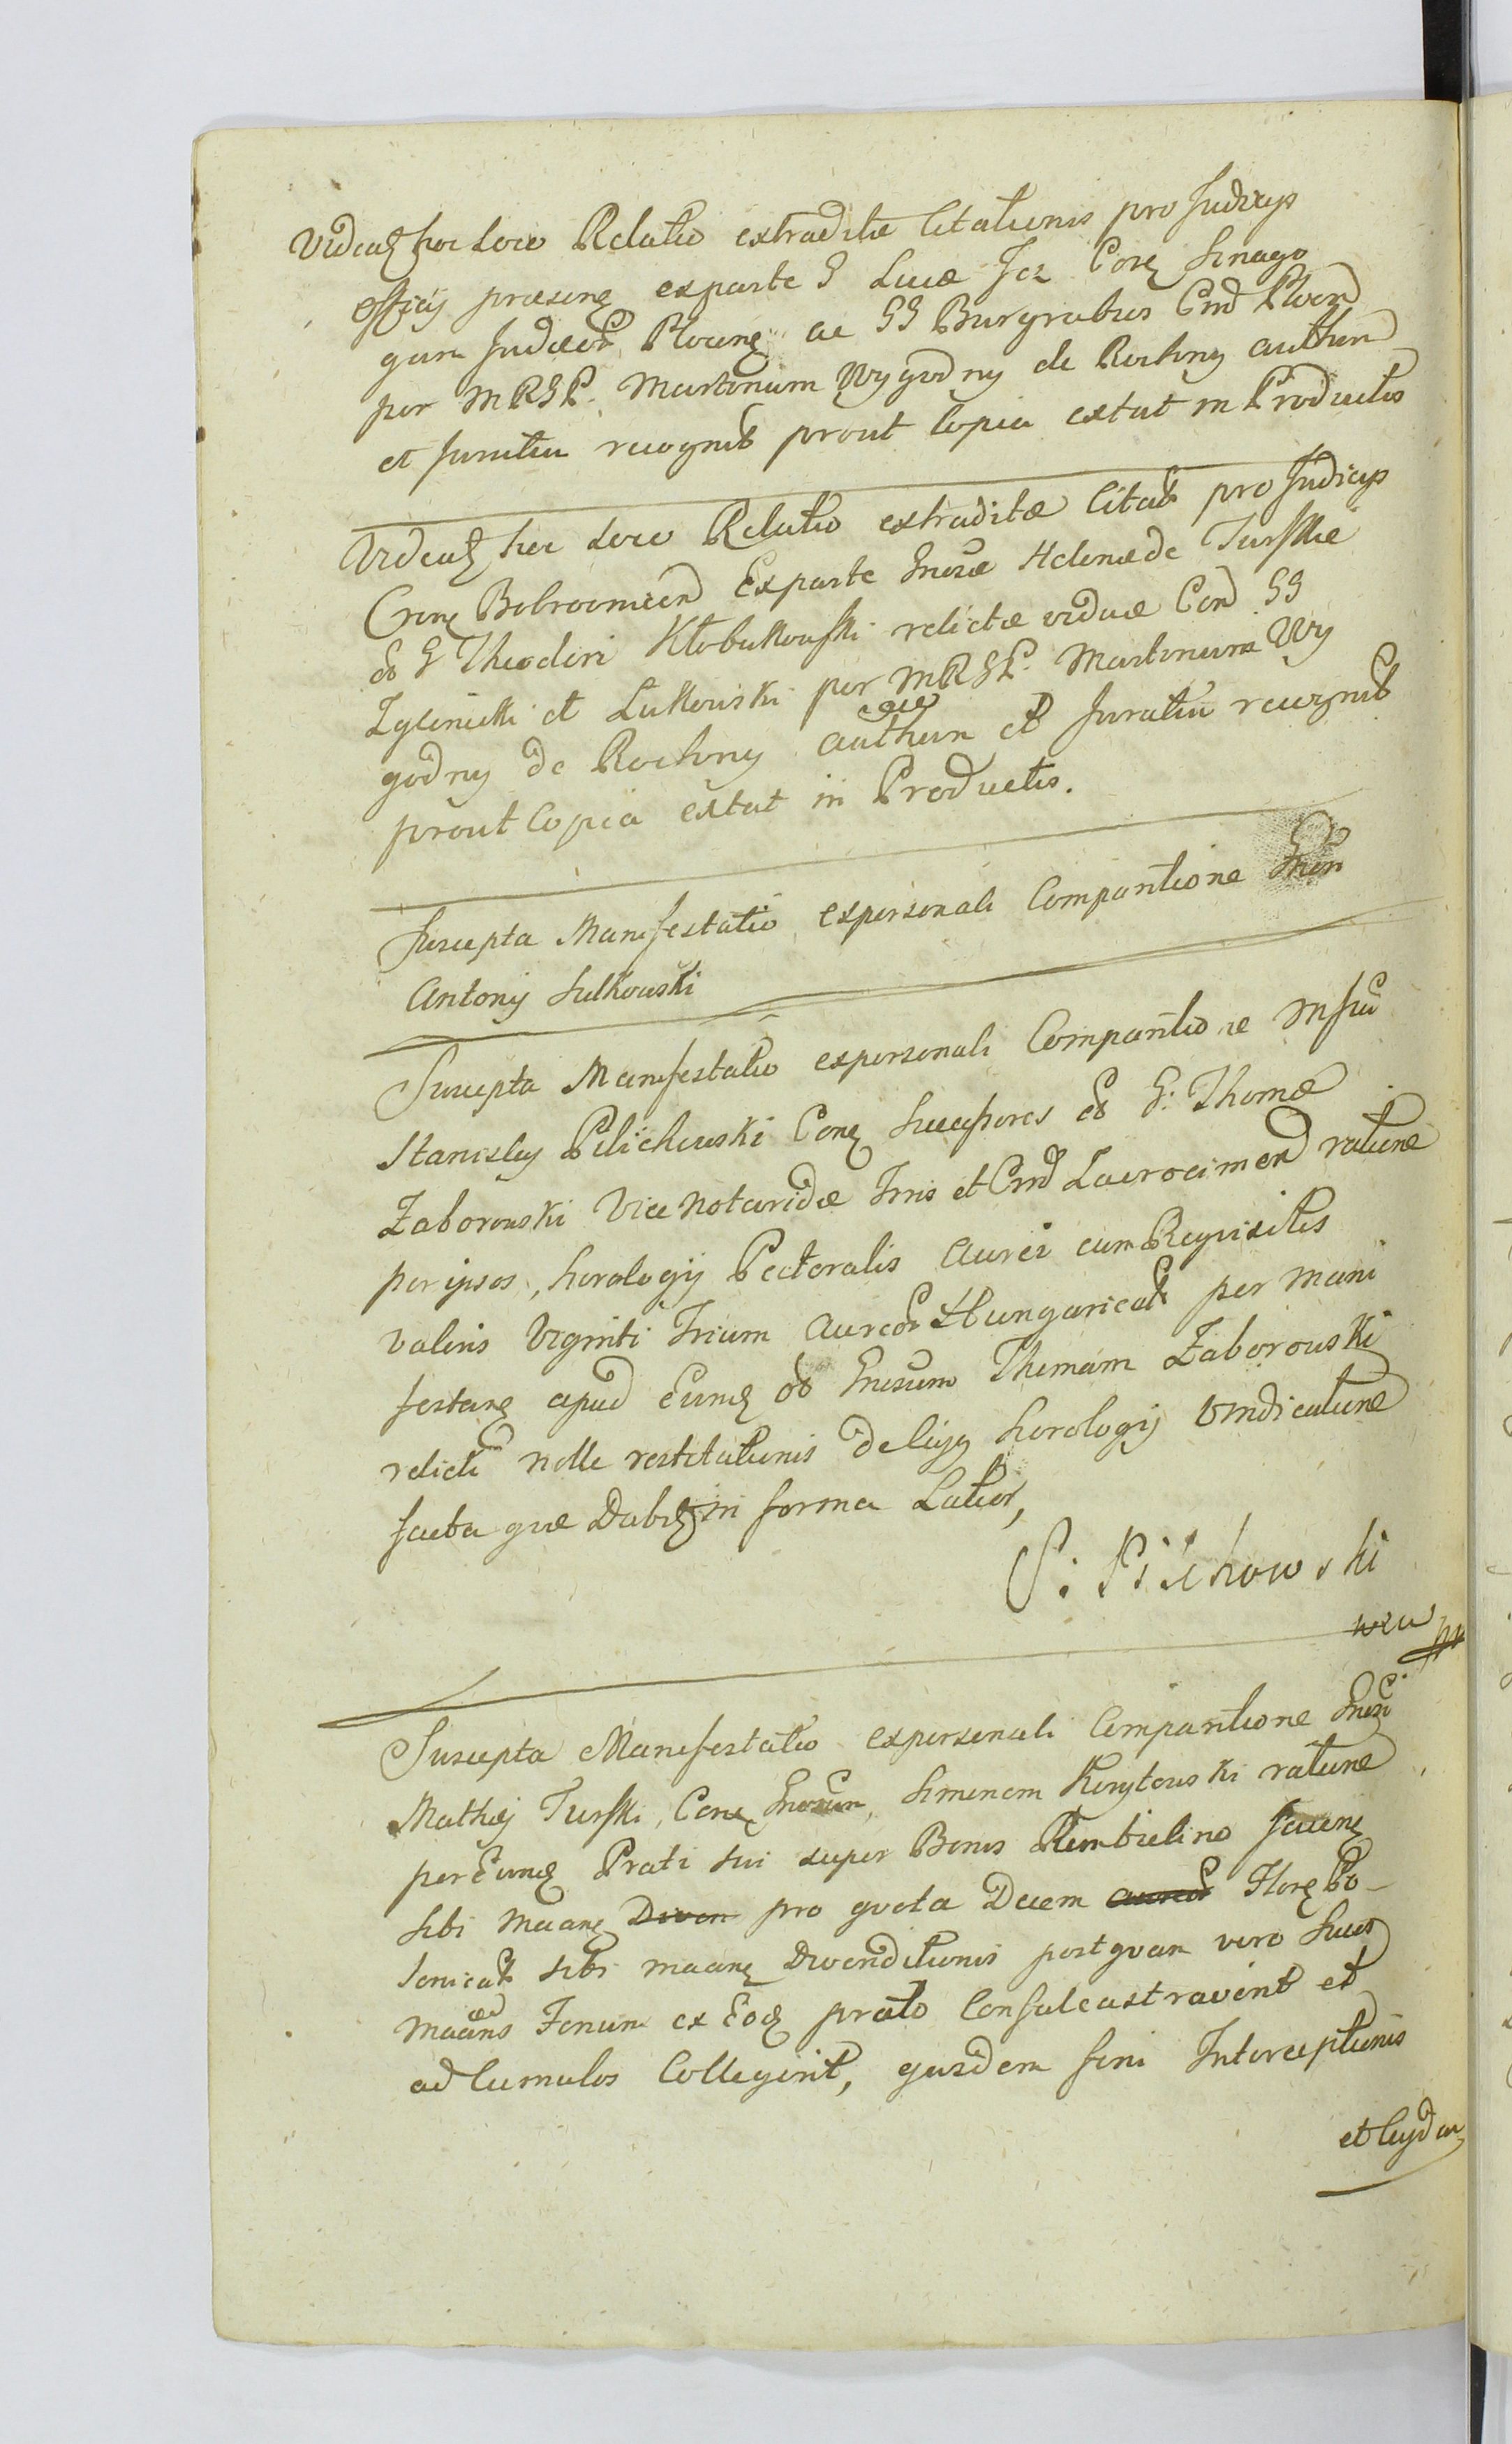 Videatz hoc Loco Relatio extraditæ Citationis pro Judicys
officij præsenz exparte G Lucæ Jcz Conz Sinago
gam Judæor Plocenz ac GG Burgrabios Cmd Plocen
per MRGP. Martinum Wygodny de Rochny authen
et juratu recognit prout Copia extat in Productis
Videatz hoc Loco Relatio extraditæ Citat pro Judicys
Crenz Bobrovnicen Exparte Gnosæ Helenæ de Turskie
ol G Theodori Kłobukowski relictæ viduæ Con GG
Zglinicki et Lukowski per MRGP. Martinum Wy
godny de Rochny authen et juratu recognit
prout Copia extat in Productis.
Suscepta Manifestatio expersonali Comparitione Gnosi
Antonij Sulkowski
Suscepta Manifestatio expersonali Comparitione Mfici
Stanislaj Pilichowski Conz Successores ol G. Thomæ
Zaborowski Vice Notaridæ Trris et Cmd Zavrocimen ratione
per ipsos, horologij Pectoralis Aurei cum Requisitis
valoris Viginti Trium Aureor Hungarical per mani
festanz apud Eumz ol Gnosum Thomam Zaborowski
relicti nolle restitutionis deliqz horologij vindicatione
facta quæ Dabitz in forma Latior,
P: Pilichowski
mppr
Suscepta Manifestatio expersonali Comparitione Gnosi
Mathæj Turski, Conz Gnosum, Simonem Korytowski ratione
per Eumz Prati sui super Bonis Rembielino jacenz
sibi maanz Diven pro quota Decem aureor Florz Po-
lonical sibi maanz Divenditionis postquam vero suus
maans Fenum ex Eodz prato Confalcastraverit et
ad Cumulos Collegerit, ejusdem feni Interceptionis
et Cujdem